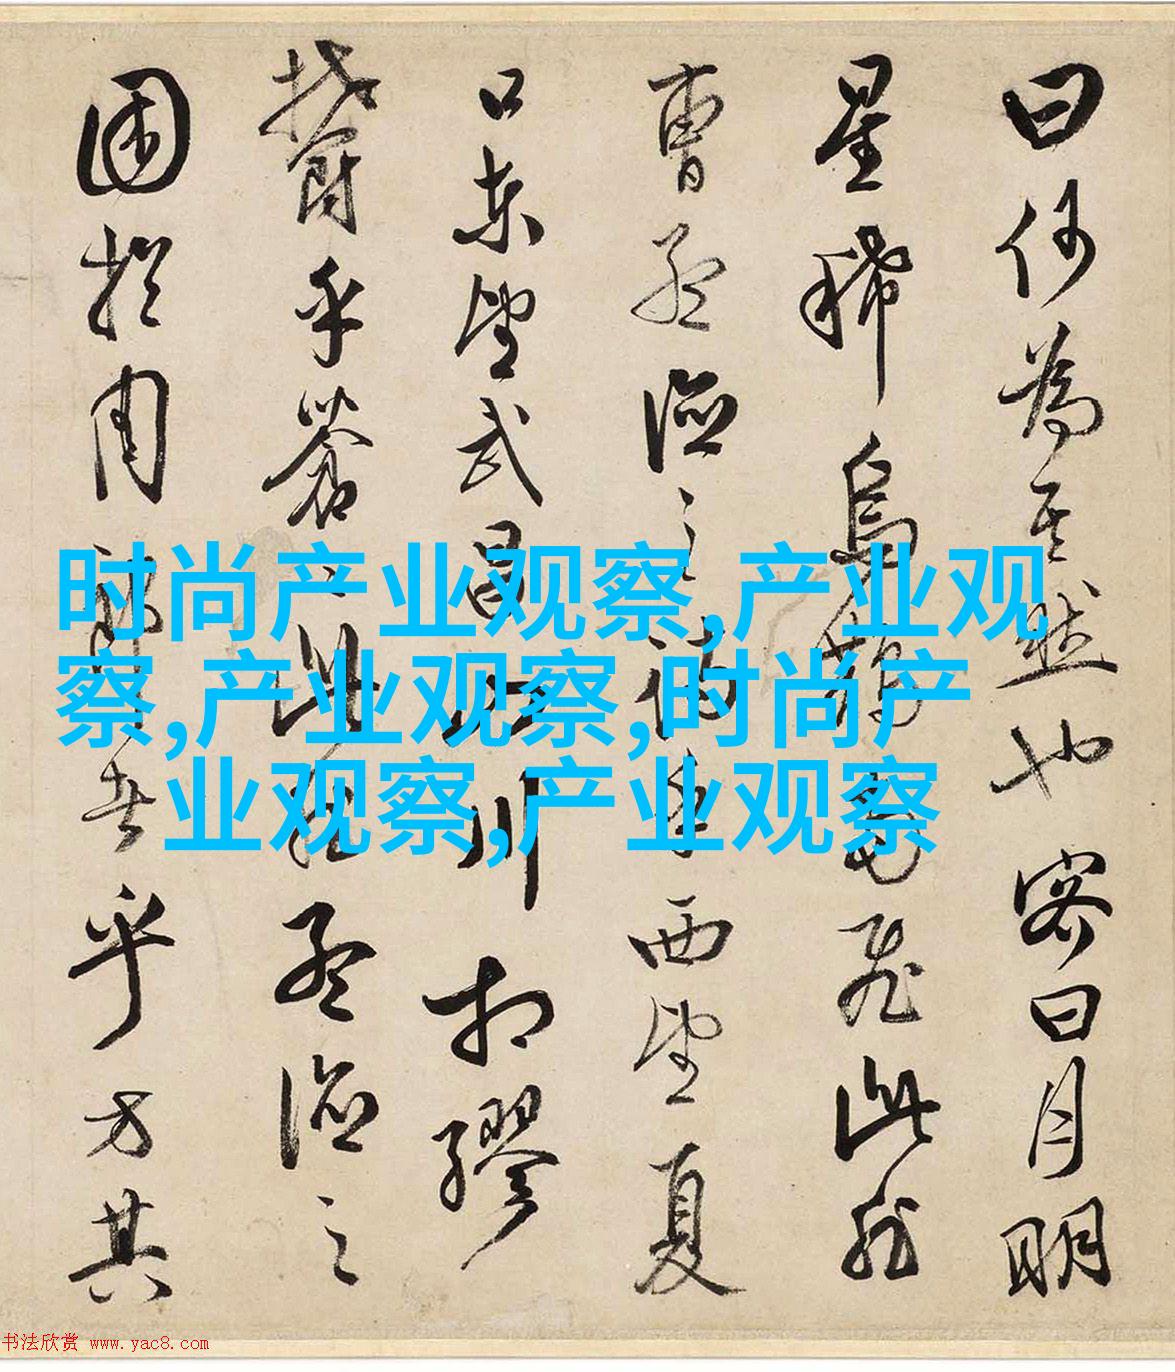 曰何為其然也客曰月明
星稀烏鵲南飛此非
曹孟德之詩乎西望夏
口東望武昌山川相繆
鬱乎蒼〻此非孟德之
困於周郎者乎方其
时尚产业观察,产业观
察,产业观察,时尚产
业观察,产业观察
书法欣赏 www.yac8.com